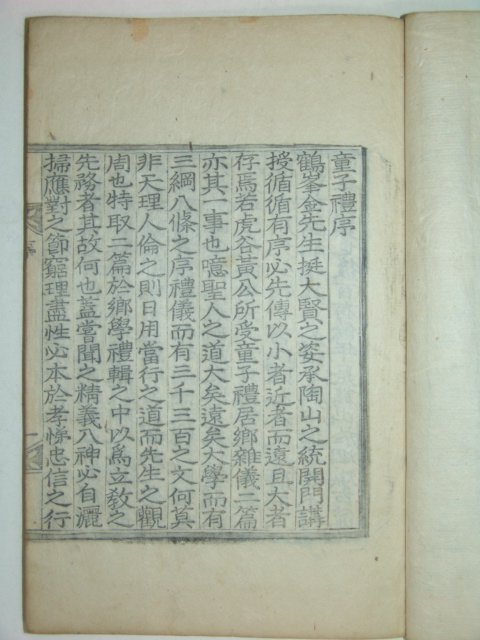 童子禮序
鶴峯金先生挺大賢之姿承陶山之統開門講
授循循有序必先傳以小者近者而遠且大者
存焉若虎谷黃公所受童子禮居鄕雜儀二篇
亦其一事也噫聖人之道大矣遠矣大學而有
三綱八條之序禮儀而有三千三百之文何莫
非天理人倫之則日用當行之道而先生之觀
周也特取二篇於鄕學禮輯之中以爲立敎之
先務者其故何也蓋嘗聞之精義入神必自灑
掃應對之節窮理盡性必本於孝悌忠信之行
序